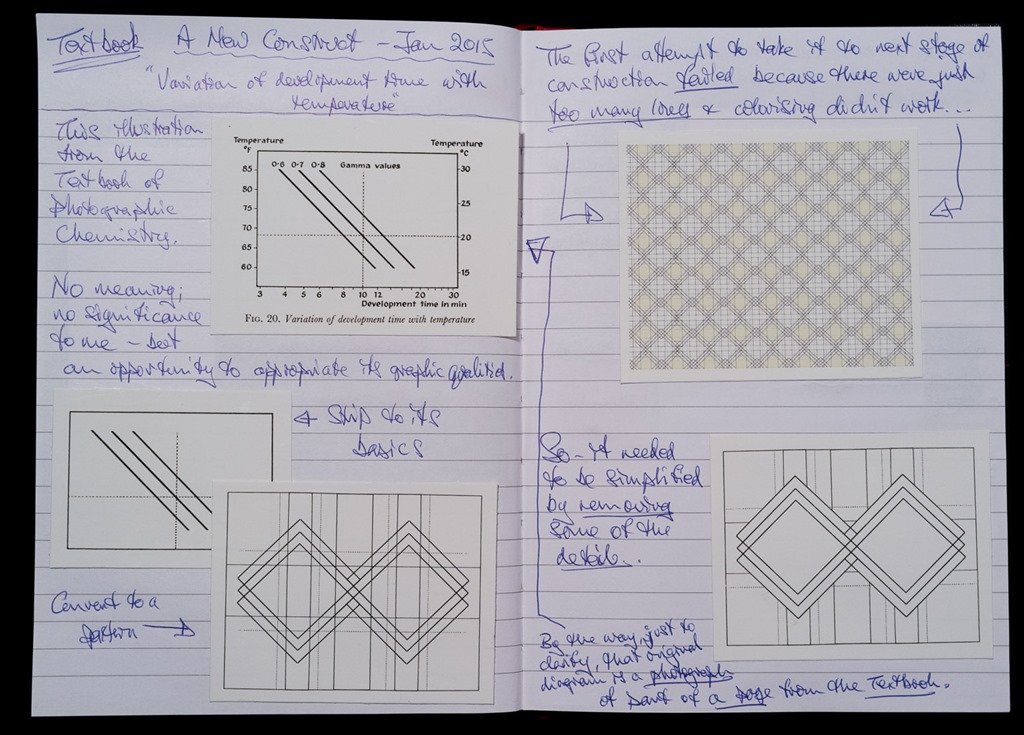 Textbook A New Construct - Jan 2015
"Variation of development time with
temperature"
This illustration
from the
Textbook of
Photographic
Chemistry.
No meaning;
no significance
to me - but
an opportunity to appropriate its graphic qualities.
Temperature
°F
Temperature
°C
0·6 0·7 0·8 Gamma values
85
80
75
70
65
60
30
25
20
15
3 4 5 6 8 10 12 20 30
Development time in min
FIG. 20. Variation of development time with temperature
Strip to its
basics
Convert to a
pattern
The first attempt to take it to next stage of
construction failed because there were just
too many lines & colorising didn't work...
So - it needed
to be simplified
by removing
some of the
detail..
By the way, just to
clarify, that original
diagram is a photograph
of part of a page from the Textbook.